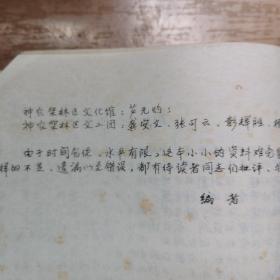 神农架林区文化馆：芦元昀；
神农架林区文工团：龚安文、张可云、彭祥胜、
由于时间仓促，水平有限，这本小小的资料难免
样的不足、遗漏以至错误，都有待读者同志们批评、
编者